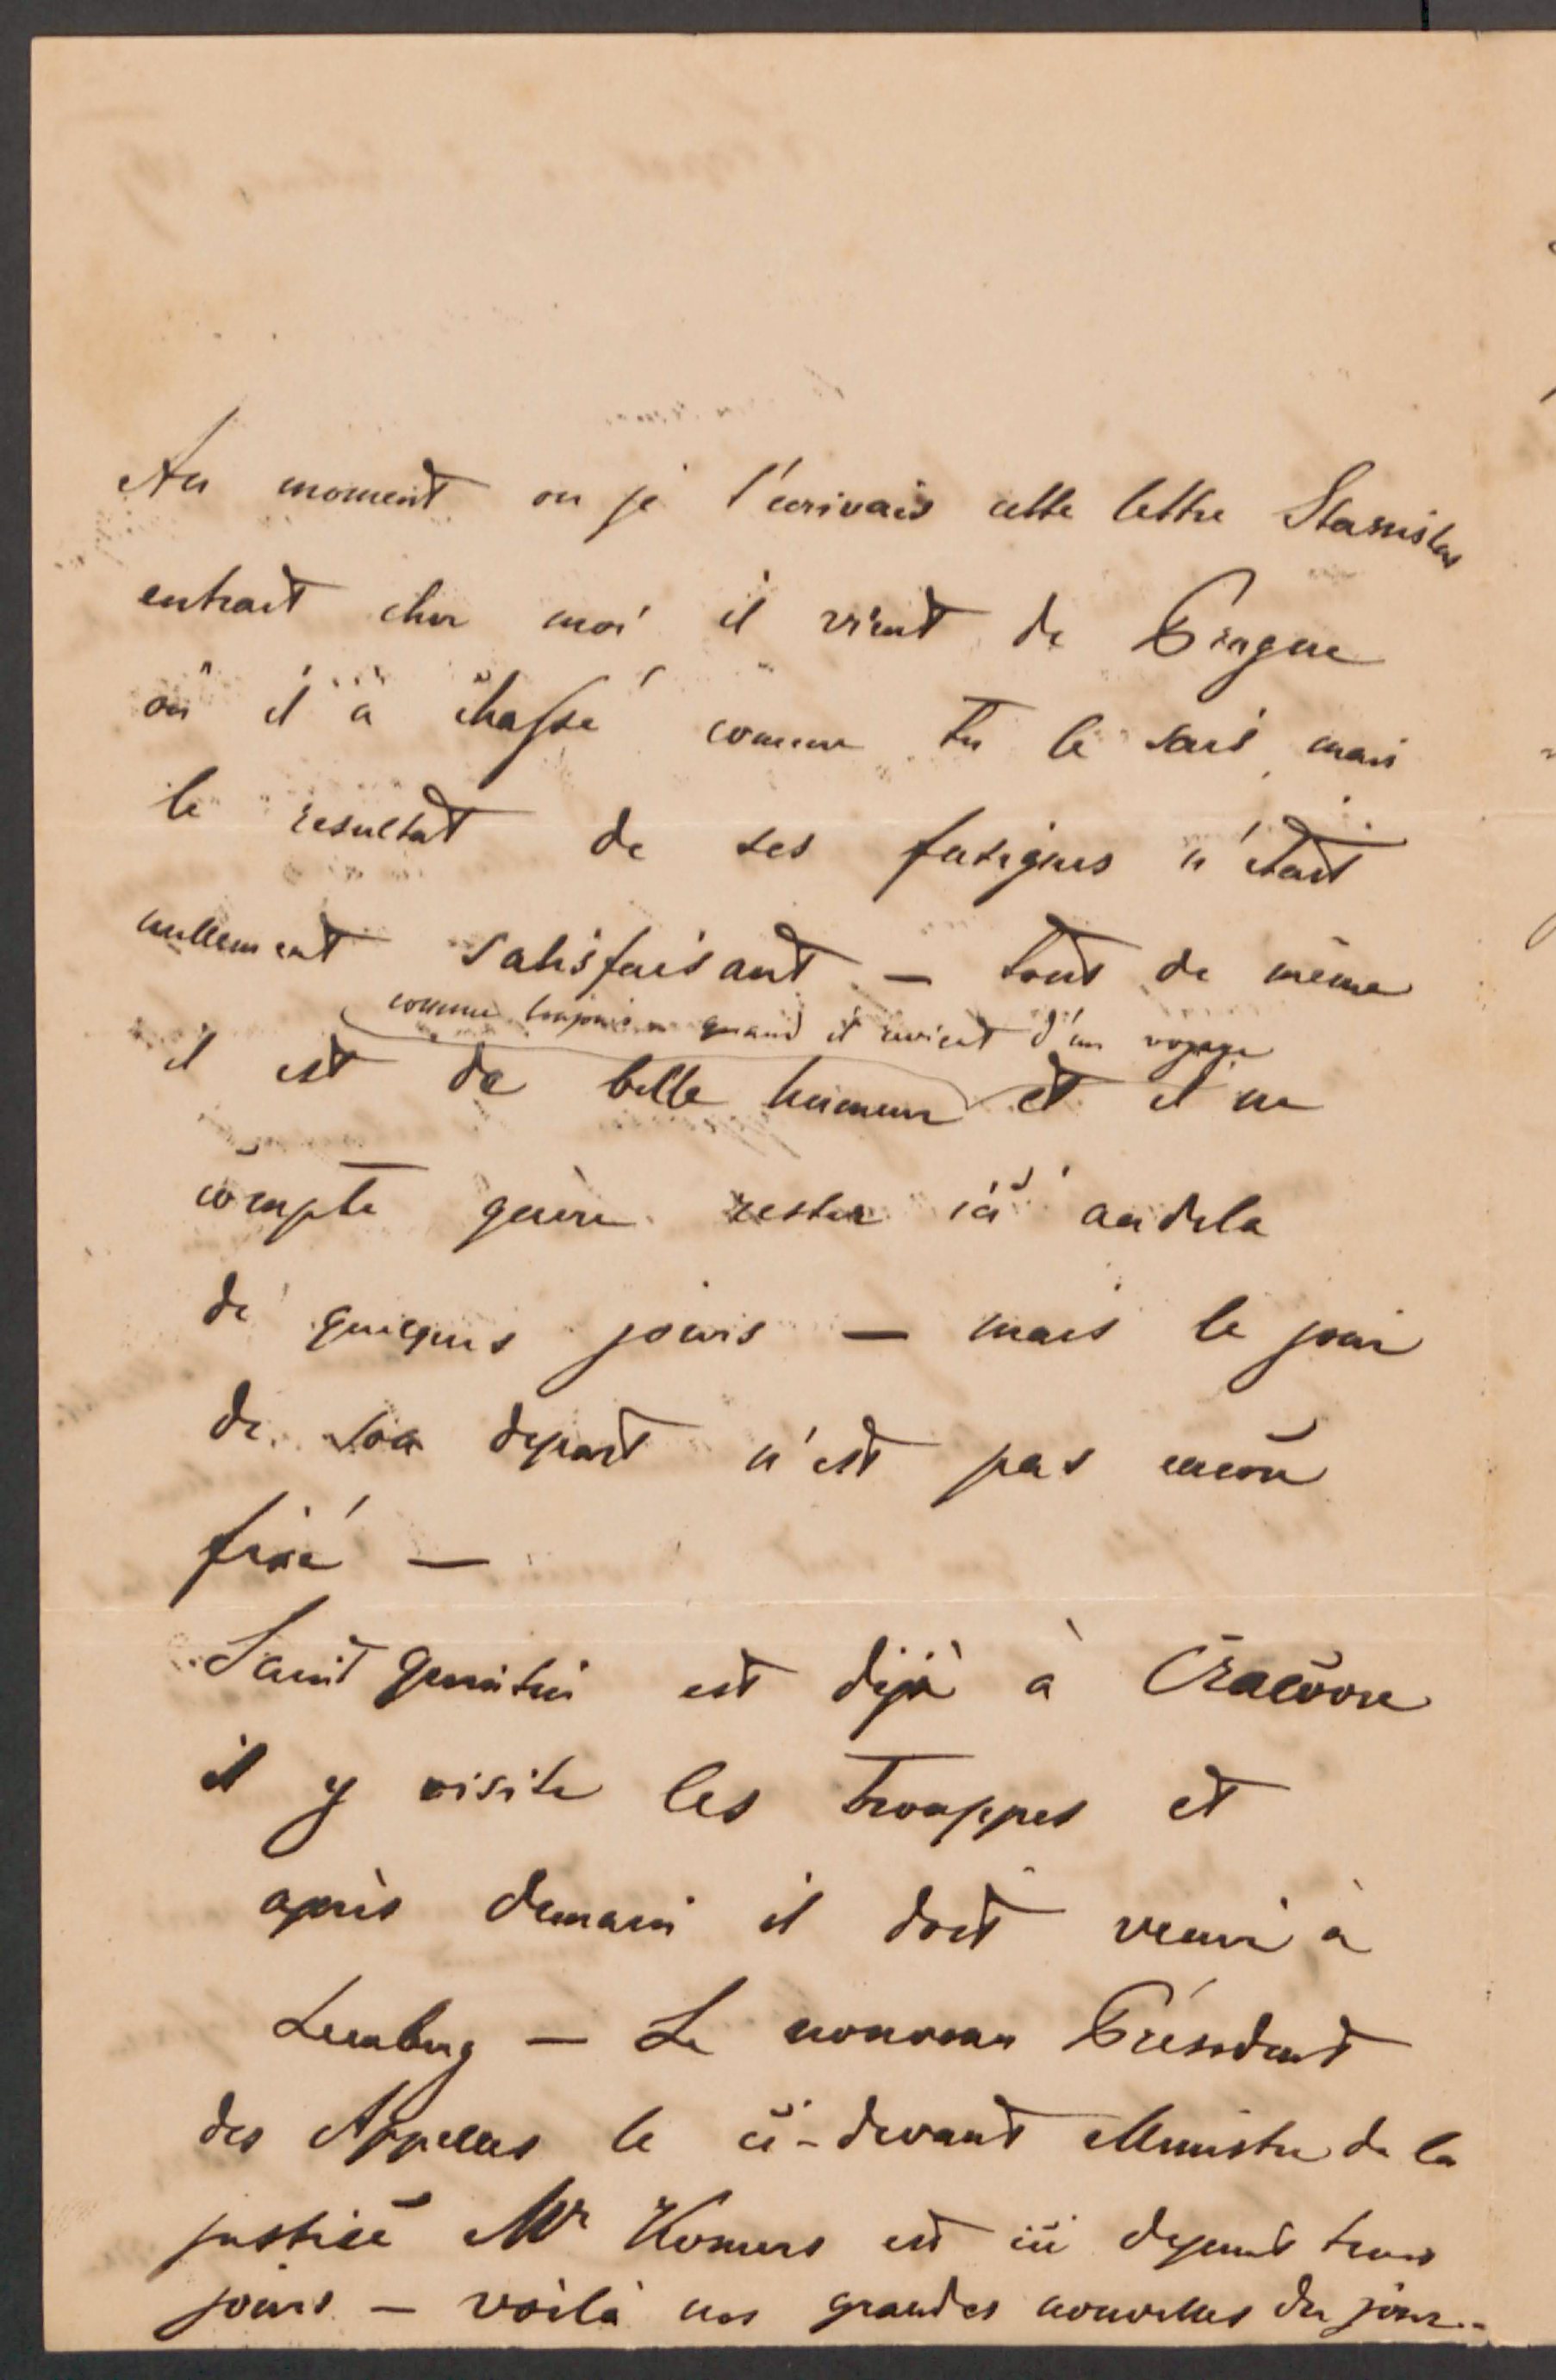 Au moment ou je t'ecrivais cette lettre Stanislas
entrait chez moi il vient de Prague
où il à chassé comme tu le sais, mais
le resultat de ses fatigues n'était
nullement satisfaisant — tout de même
comme toujours quand il revient d'un voyage
il est de belle humeur et il ne
compte guère rester ici audela
de quelques jours — mais le jour
de son depart n'est pas encore
fixé —
Saint Quentin est déjà à Cracovie
il y visite les trouppes et
après demain il doit venir à
Lemberg — Le nouveau Président
des Appelles le ci-devant Ministre de la
justice Mr Komers est ici depuis trois
jours — voilà nos grandes nouvelles du jour. -